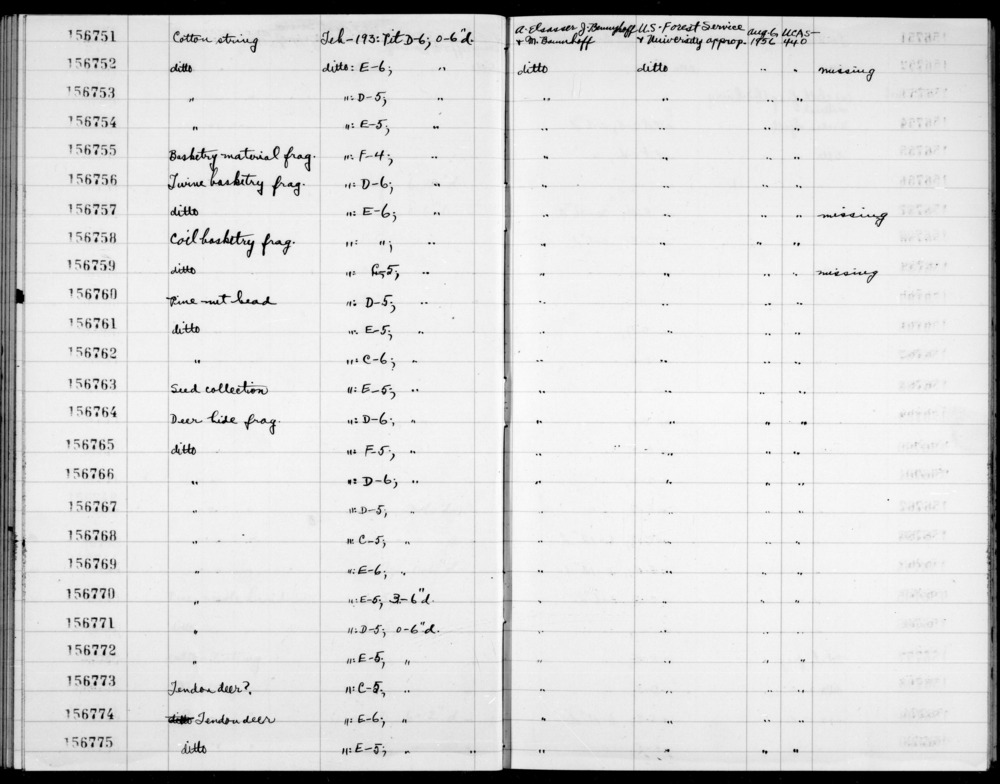 156751 Cotton string Teh-193: Pit D-6; 0-6"d. A. Elsasser J. Baumhoff U.S. Forest Service Aug 6, UCAS-
& M. Baumhoff & University approp. 1956 440
156752 ditto ditto: E-6; " ditto ditto " " missing
156753 " ": D-5; " " " " "
156754 " ": E-5; " " " " "
156755 Basketry material frag. ": F-4; " " " " "
156756 Twine basketry frag. ": D-6; " " " " "
156757 ditto ": E-6; " " " " " missing
156758 Coil basketry frag. ": "; " " " " "
156759 ditto ": 5; " " " " " missing
156760 Pine-nut bead ": D-5; " " " " "
156761 ditto ": E-5; " " " " "
156762 " ": C-6; " " " " "
156763 Seed collection ": E-5; " " " " "
156764 Deer hide frag. ": D-6; " " " " "
156765 ditto ": F-5; " " " " "
156766 " ": D-6; " " " " "
156767 " ": D-5; " " " " "
156768 " ": C-5; " " " " "
156769 " ": E-6; " " " " "
156770 " ": E-5; 3-6"d. " " " "
156771 " ": D-5; 0-6"d. " " " "
156772 " ": E-5; " " " " "
156773 Tendon deer?. ": C-5; " " " " "
156774 ditto Tendon deer ": E-6; " " " " "
156775 ditto ": E-5; " " " " "